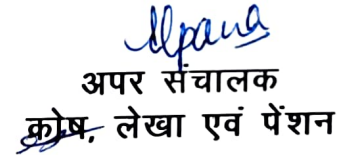 Alpana
अपर संचालक
कोष, लेखा एवं पेंशन